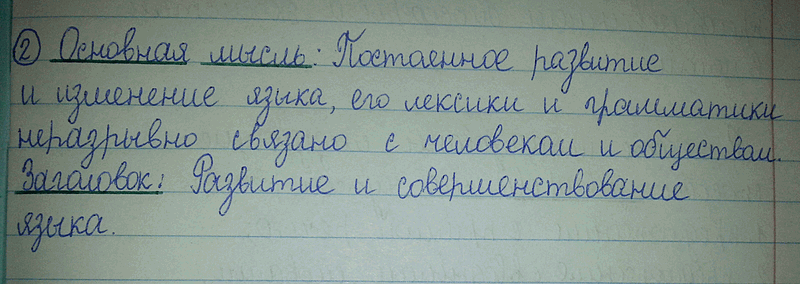 ② Основная мысль: Постоенное развитие
и изменение языка, его лексики и грамматики
неразрывно связано с человеком и обществом.
Заголовок: Развитие и совершенствование
языка.